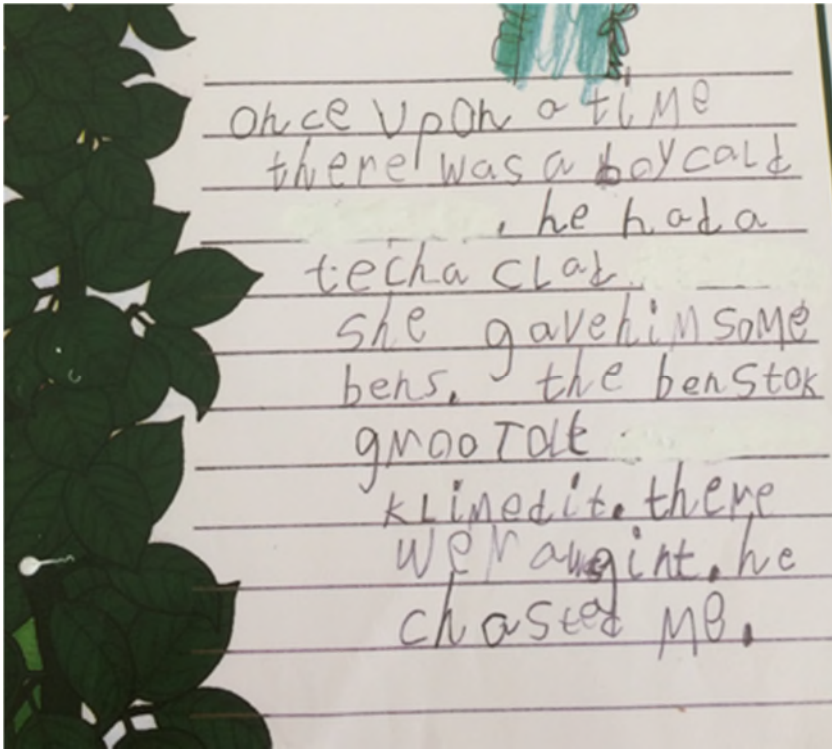 once upon a time
there was a boy cald
, he had a
techa clad.
she gave him some
bens. the benstok
groo Talt
klimed it. there
wer a gint. he
chasted me.